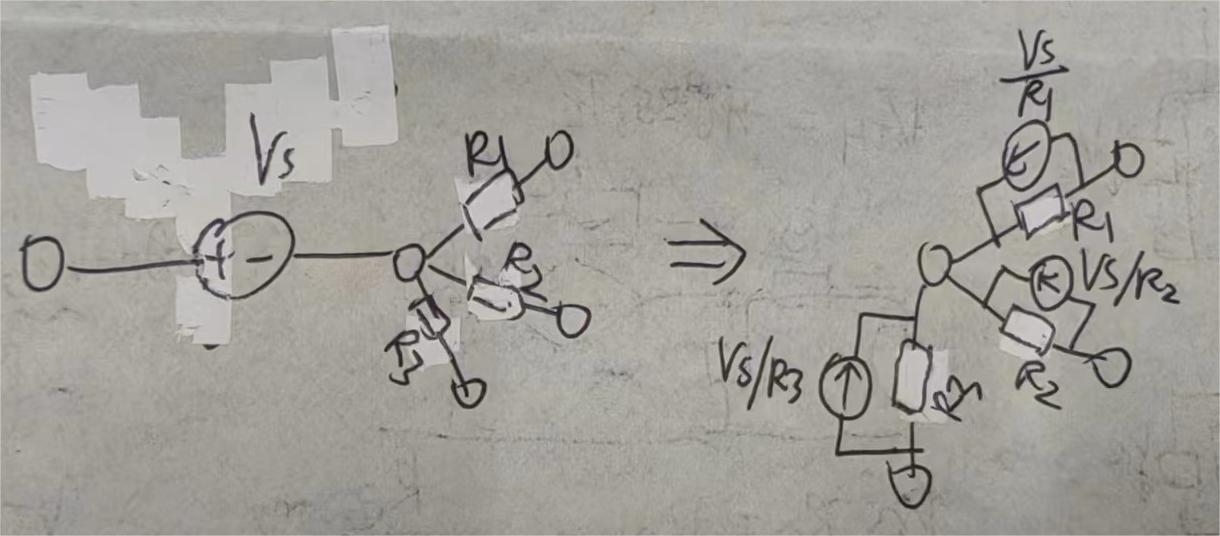 Vs
+ -
R1
R2
R3
⇒
Vs
R1
R1
Vs/R2
R2
Vs/R3
R3